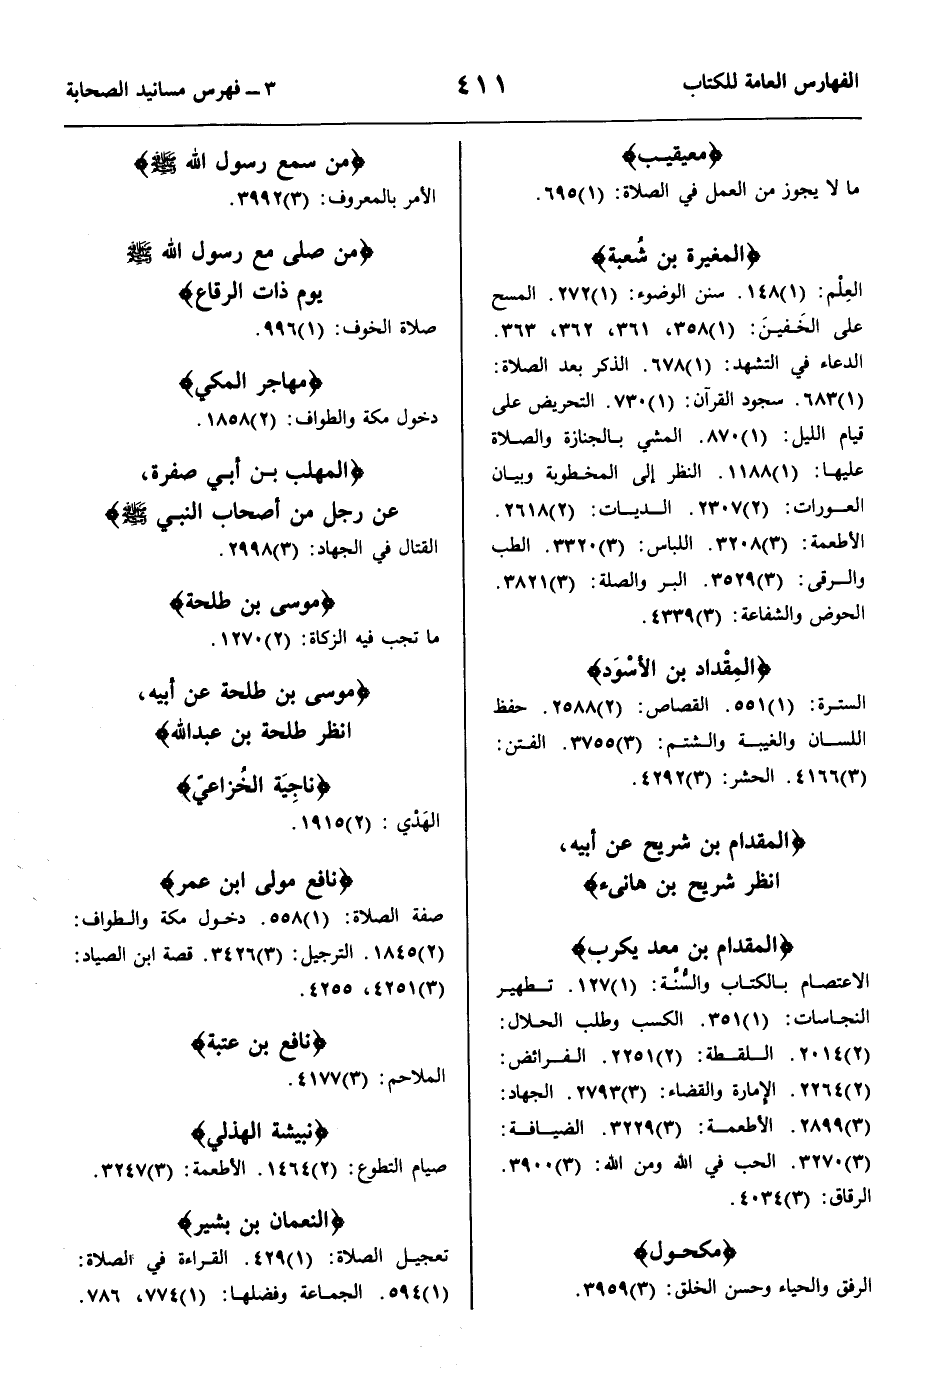 الفهارس العامة للكتاب
٤١١
٣ ـ فهرس مسانيد الصحابة
﴿معيقيب﴾
ما لا يجوز من العمل في الصلاة: (١)٦٩٥.
﴿المغيرة بن شُعبة﴾
العِلْم: (١)١٤٨. سنن الوضوء: (١)٢٧٢. المسح
على الخَفينَ: (١)٣٥٨، ٣٦١، ٣٦٢، ٣٦٣.
الدعاء في التشهد: (١)٦٧٨. الذكر بعد الصلاة:
(١)٦٨٣. سجود القرآن: (١)٧٣٠. التحريض على
قيام الليل: (١)٨٧٠. المشي بالجنازة والصلاة
عليها: (١)١١٨٨. النظر إلى المخطوبة وبيان
العورات: (٢)٢٣٠٧. الديات: (٢)٢٦١٨.
الأطعمة: (٣)٣٢٠٨. اللباس: (٣)٣٣٢٠. الطب
والرقى: (٣)٣٥٢٩. البر والصلة: (٣)٣٨٢١.
الحوض والشفاعة: (٣)٤٣٣٩.
﴿المِقْداد بن الأسْوَد﴾
السترة: (١)٥٥١. القصاص: (٢)٢٥٨٨. حفظ
اللسان والغيبة والشتم: (٣)٣٧٥٥. الفتن:
(٣)٤١٦٦. الحشر: (٣)٤٢٩٢.
﴿المقدام بن شريح عن أبيه،
انظر شريح بن هانىء﴾
﴿المقدام بن معد يكرب﴾
الاعتصام بالكتاب والسُّنَّة: (١)١٢٧. تطهير
النجاسات: (١)٣٥١. الكسب وطلب الحلال:
(٢)٢٠١٤. اللقطة: (٢)٢٢٥١. الفرائض:
(٢)٢٢٦٤. الإمارة والقضاء: (٣)٢٧٩٣. الجهاد:
(٣)٢٨٩٩. الأطعمة: (٣)٣٢٢٩. الضيافة:
(٣)٣٢٧٠. الحب في الله ومن الله: (٣)٣٩٠٠.
الرقاق: (٣)٤٠٣٤.
﴿مكحول﴾
الرفق والحياء وحسن الخلق: (٣)٣٩٥٩.
﴿من سمع رسول الله ﷺ﴾
الأمر بالمعروف: (٣)٣٩٩٢.
﴿من صلى مع رسول الله ﷺ
يوم ذات الرقاع﴾
صلاة الخوف: (١)٩٩٦.
﴿مهاجر المكي﴾
دخول مكة والطواف: (٢)١٨٥٨.
﴿المهلب بن أبي صفرة،
عن رجل من أصحاب النبي ﷺ﴾
القتال في الجهاد: (٣)٢٩٩٨.
﴿موسى بن طلحة﴾
ما تجب فيه الزكاة: (٢)١٢٧٠.
﴿موسى بن طلحة عن أبيه،
انظر طلحة بن عبدالله﴾
﴿ناجِيَة الخُزاعيّ﴾
الهَدْي : (٢)١٩١٥.
﴿نافع مولى ابن عمر﴾
صفة الصلاة: (١)٥٥٨. دخول مكة والطواف:
(٢)١٨٤٥. الترجيل: (٣)٣٤٢٦. قصة ابن الصياد:
(٣)٤٢٥١، ٤٢٥٥.
﴿نافع بن عتبة﴾
الملاحم: (٣)٤١٧٧.
﴿نبيشة الهذلي﴾
صيام التطوع: (٢)١٤٦٤. الأطعمة: (٣)٣٢٤٧.
﴿النعمان بن بشير﴾
تعجيل الصلاة: (١)٤٢٩. القراءة في الصلاة:
(١)٥٩٤. الجماعة وفضلها: (١)٧٧٤، ٧٨٦.